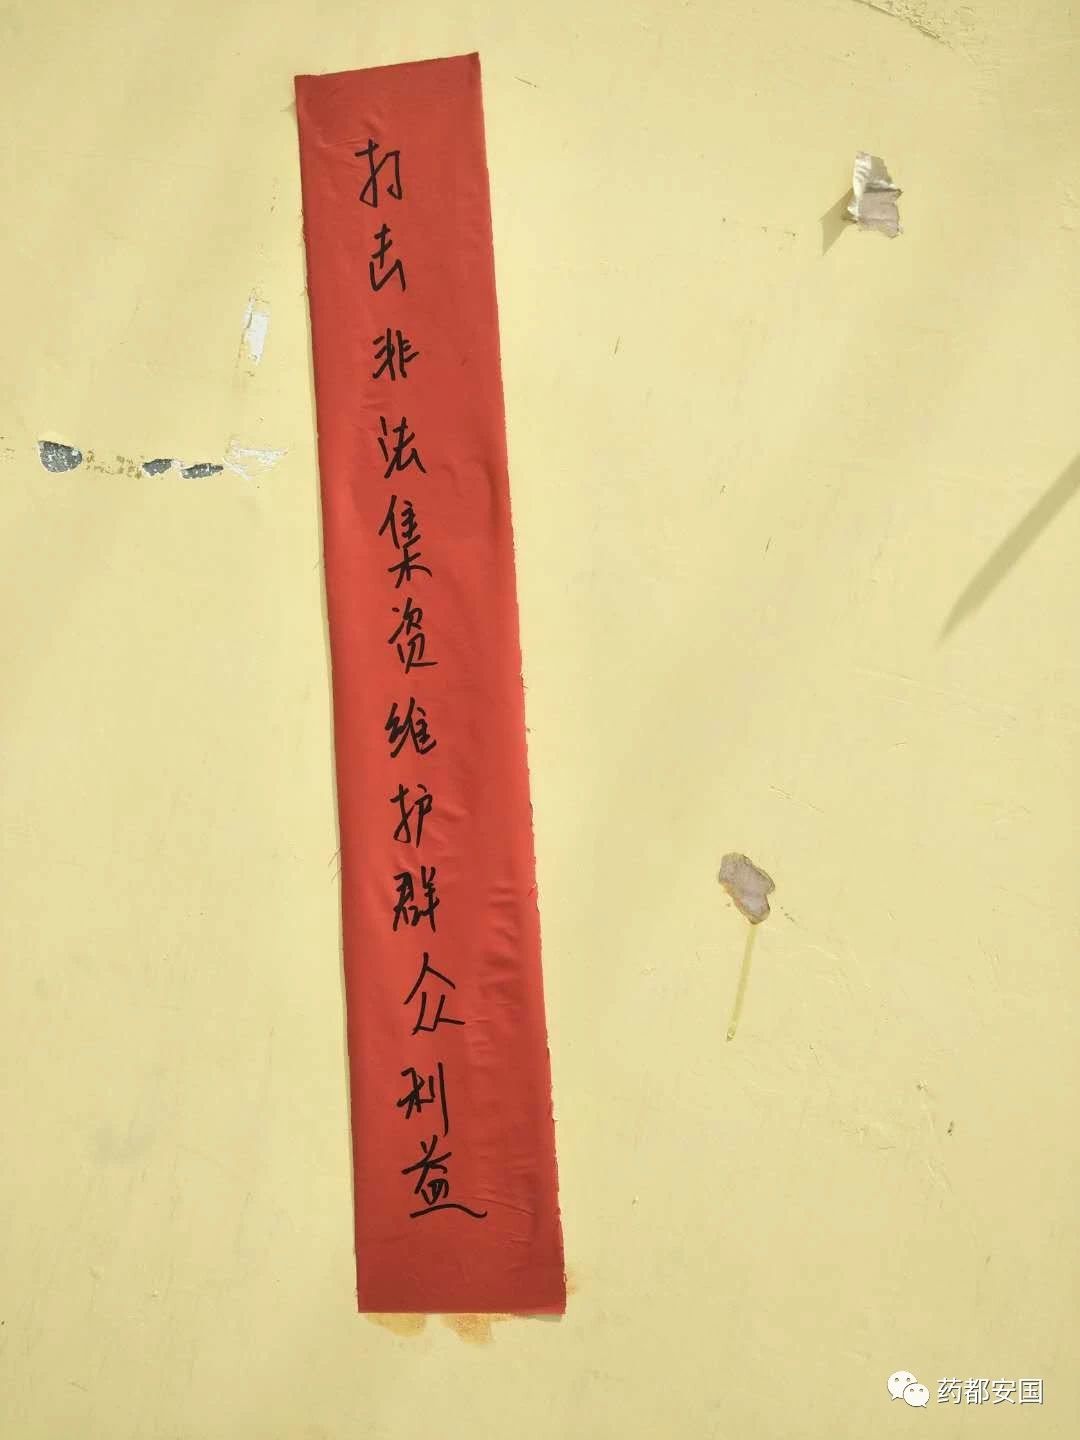 打击非法集资维护群众利益
药都安国